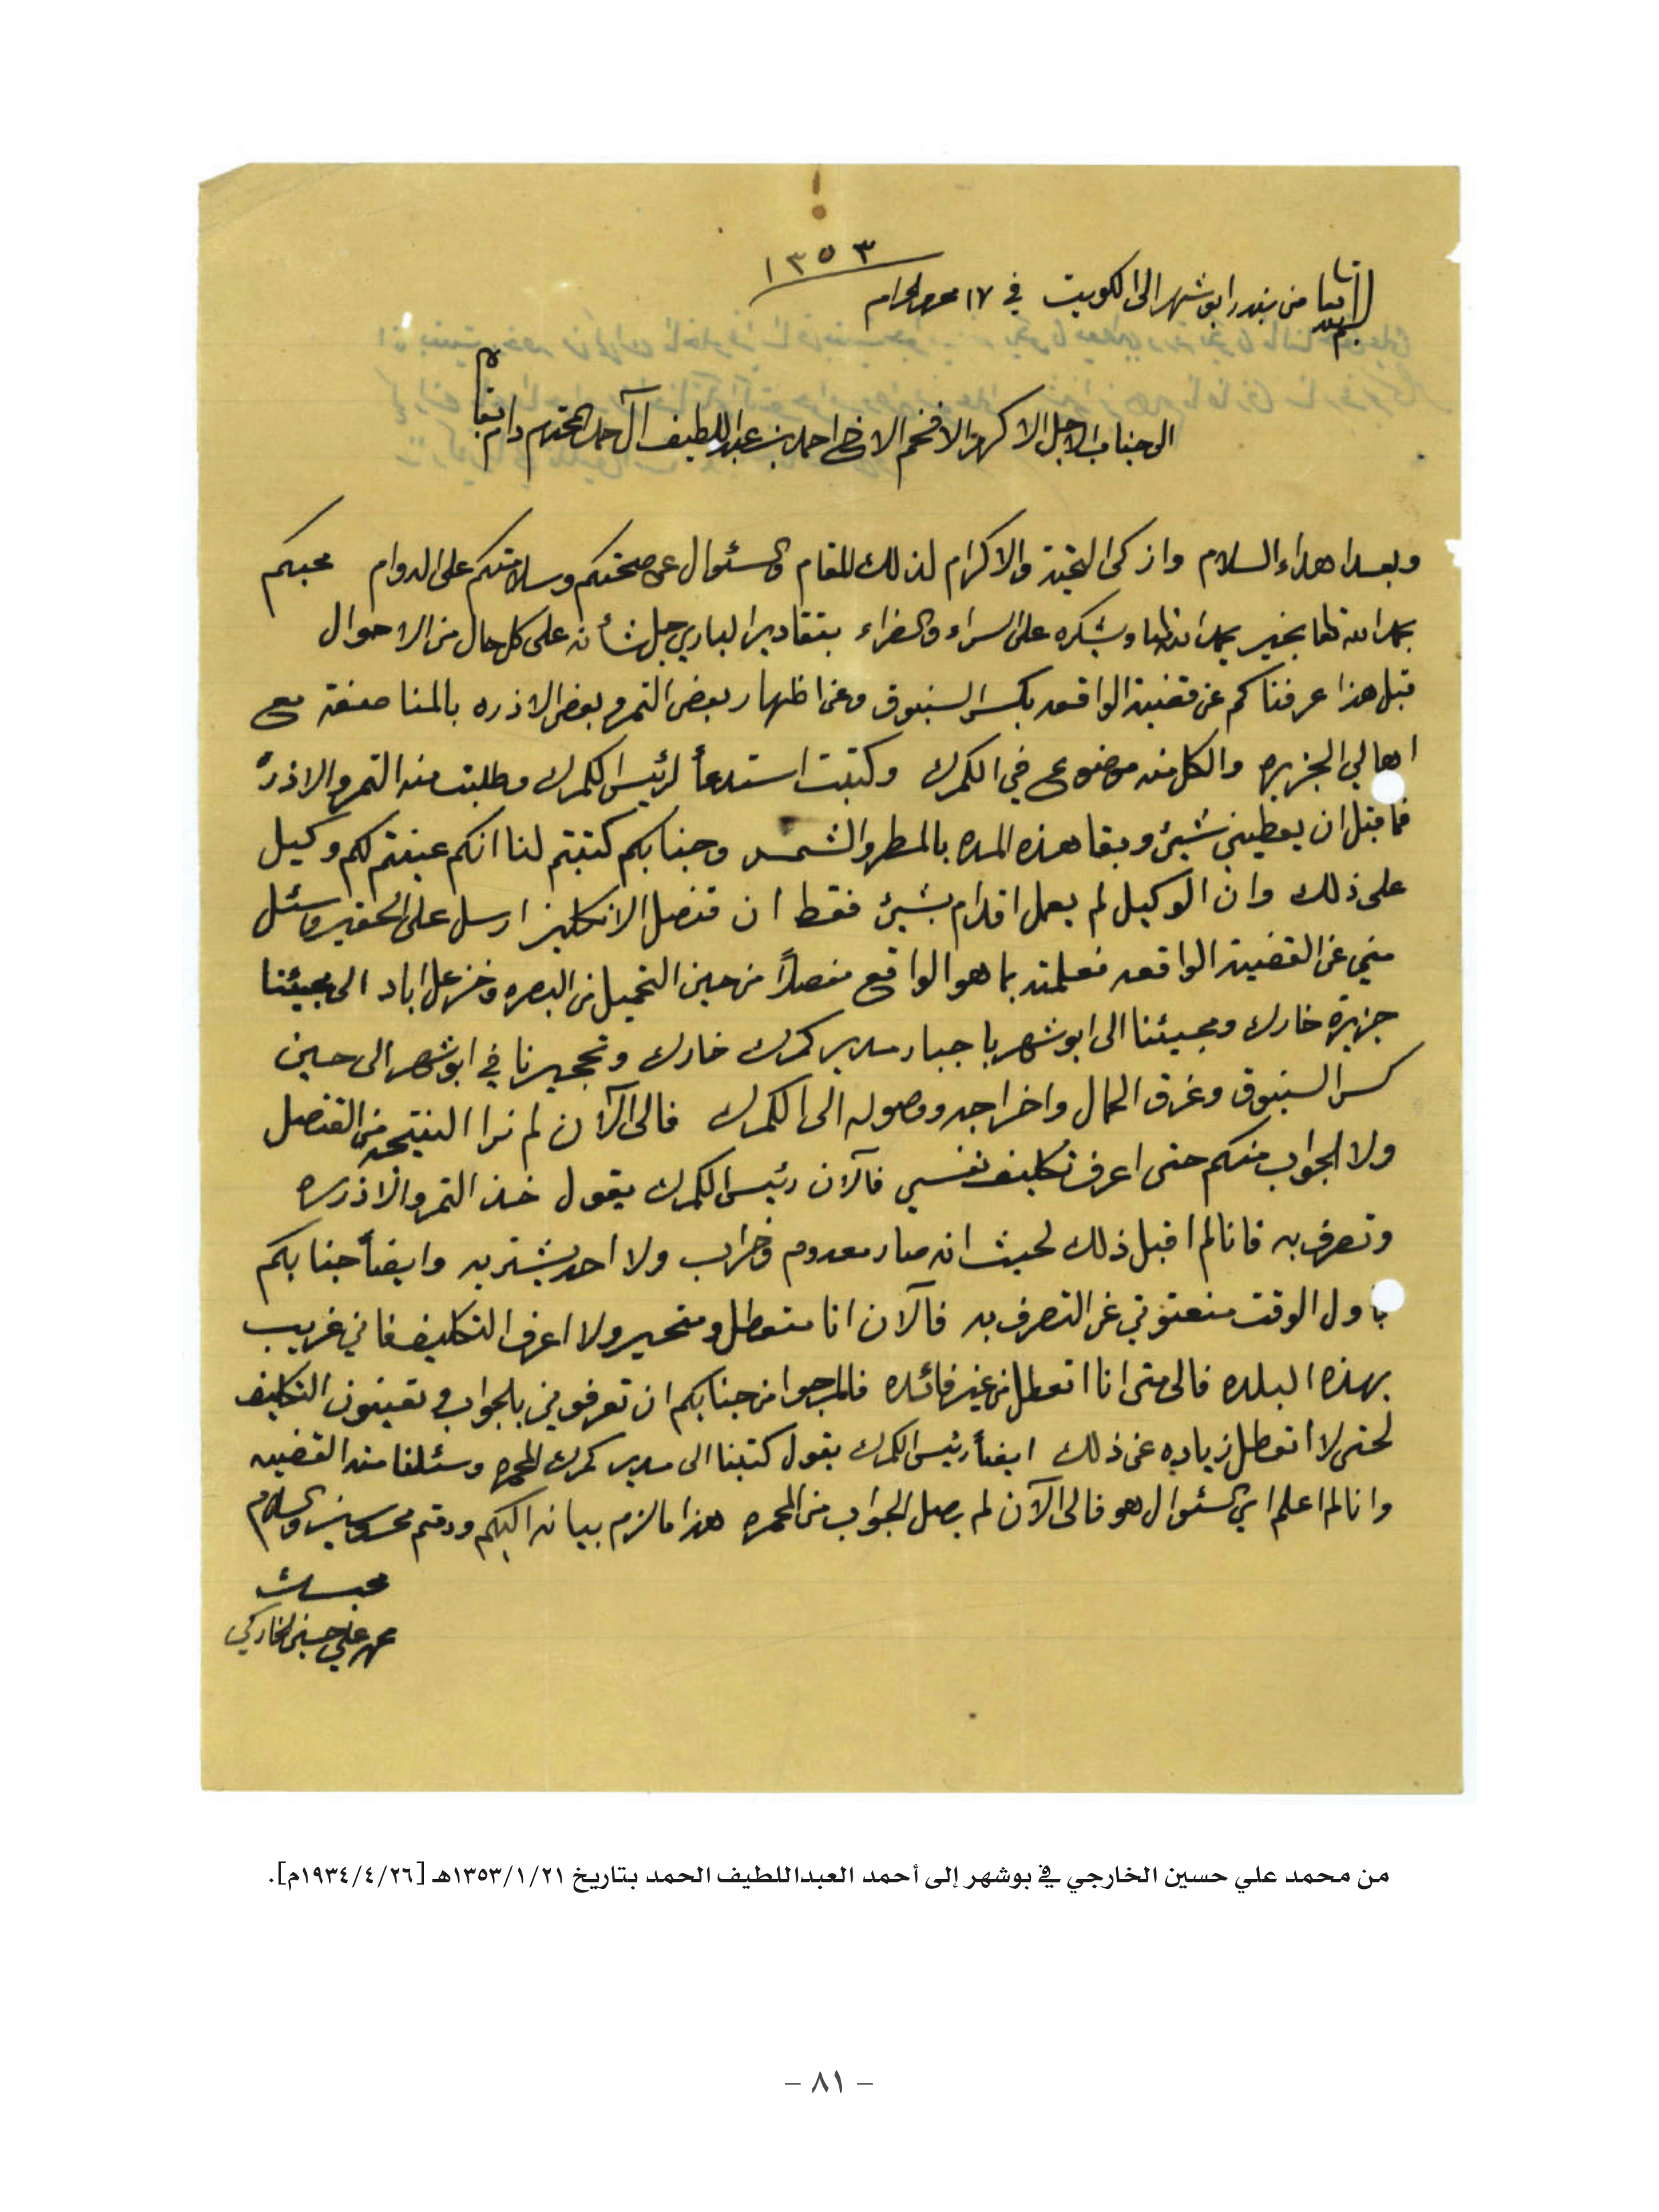 ١٣٥٣
من بندر ابوشهر الى الكويت في ١٧ محرم الحرام
الى جناب الاجل الاكرم الافخم الاخ احمد بن عبد اللطيف آل حمد المحترم دام بقاه
وبعد اهداء السلام وازكى التحية والاكرام لذلك المقام والسئوال عن صحتكم وسلامتكم على الدوام محبكم
بحمد الله تعا بخير يحمد الله تعا ويشكره على السراء والضراء بتقادير الباري جل شأنه على كل حال من الاحوال
قبل هذا عرفناكم عن قضية الواقعه بكسر السنبوق وعن اظهار بعض التمر وبعض الاذره بالمناصفة مع
اهالي الجزيره والكل منه موضوع في الكمرك وكتبت استدعأ لرئيس الكمرك وطلبت منه التمر والاذره
فما قبل ان يعطيني شيئ وبقا هذه المده بالمطر والشمس وجنابكم كتبتم لنا انكم عينتم لكم وكيل
على ذلك وان الوكيل لم يعمل اقدام بشيئ فقط ان قنصل الانكليز ارسل على الحقير وسئل
مني عن القضية الواقعه فعلمته بما هو الواقع مفصلاً من حين التحميل من البصره وخزعل اباد الى مجيئنا
جزيرة خارك ومجيئنا الى ابوشهر با جبار مدير كمرك خارك وتحجيرنا في ابوشهر الى حين
كسر السنبوق وغرق المال واخراجه ووصوله الى الكمرك فالى الآن لم نرا النتيجه من القنصل
ولا الجواب منكم حتى اعرف تكليف نفسي فآلان رئيس الكمرك يقول خذ التمر والاذره
وتصرف به فانا لم اقبل ذلك لحيث انه صار معدوم وخراب ولا احد يشتريه وايضأ جنابكم
باول الوقت منعتوني عن التصرف به فآلان انا متعطل ومتحير ولا اعرف التكليف فاني غريب
بهذه البلده فالى متى انا اتعطل من غير فائده فالمرجوا من جنابكم ان تعرفوني بالجواب وتعينون التكليف
لحتى لا اتعطل زياده عن ذلك ايضأ رئيس الكمرك يقول كتبنا الى مدير كمرك المحمره وسئلنا منه القضيه
وانا لم اعلم اي السئوال هو فالى الآن لم يصل الجواب من المحمره هذا ما لزم بيانه اليكم ودمتم محروسين والسلام
محمد علي حسين الخاركي
من محمد علي حسين الخارجي في بوشهر إلى أحمد العبداللطيف الحمد بتاريخ ١٣٥٣/١/٢١هـ [١٩٣٤/٤/٢٦م].
– ٨١ –